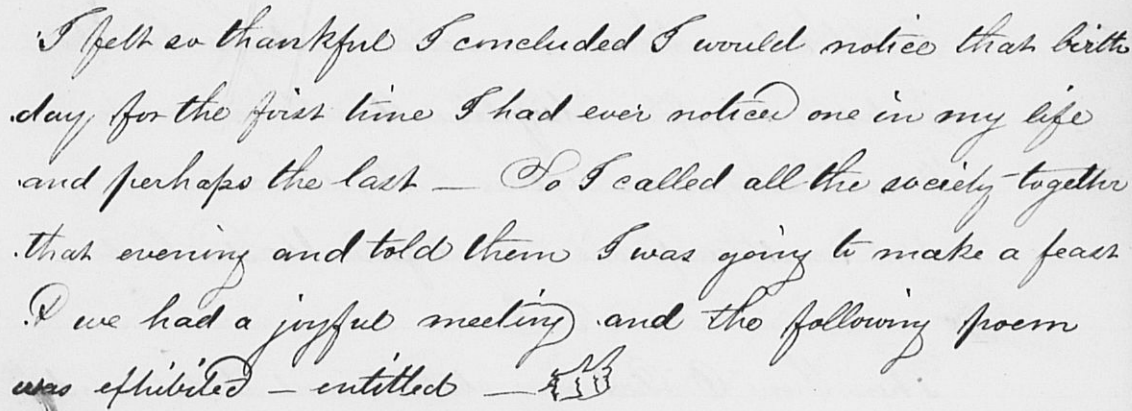 I felt so thankful I concluded I would notice that birth
day for the first time I had ever noticed one in my life
and perhaps the last — So I called all the society together
that evening and told them I was going to make a feast
& we had a joyful meeting and the following poem
was exhibited — entitled — ☞